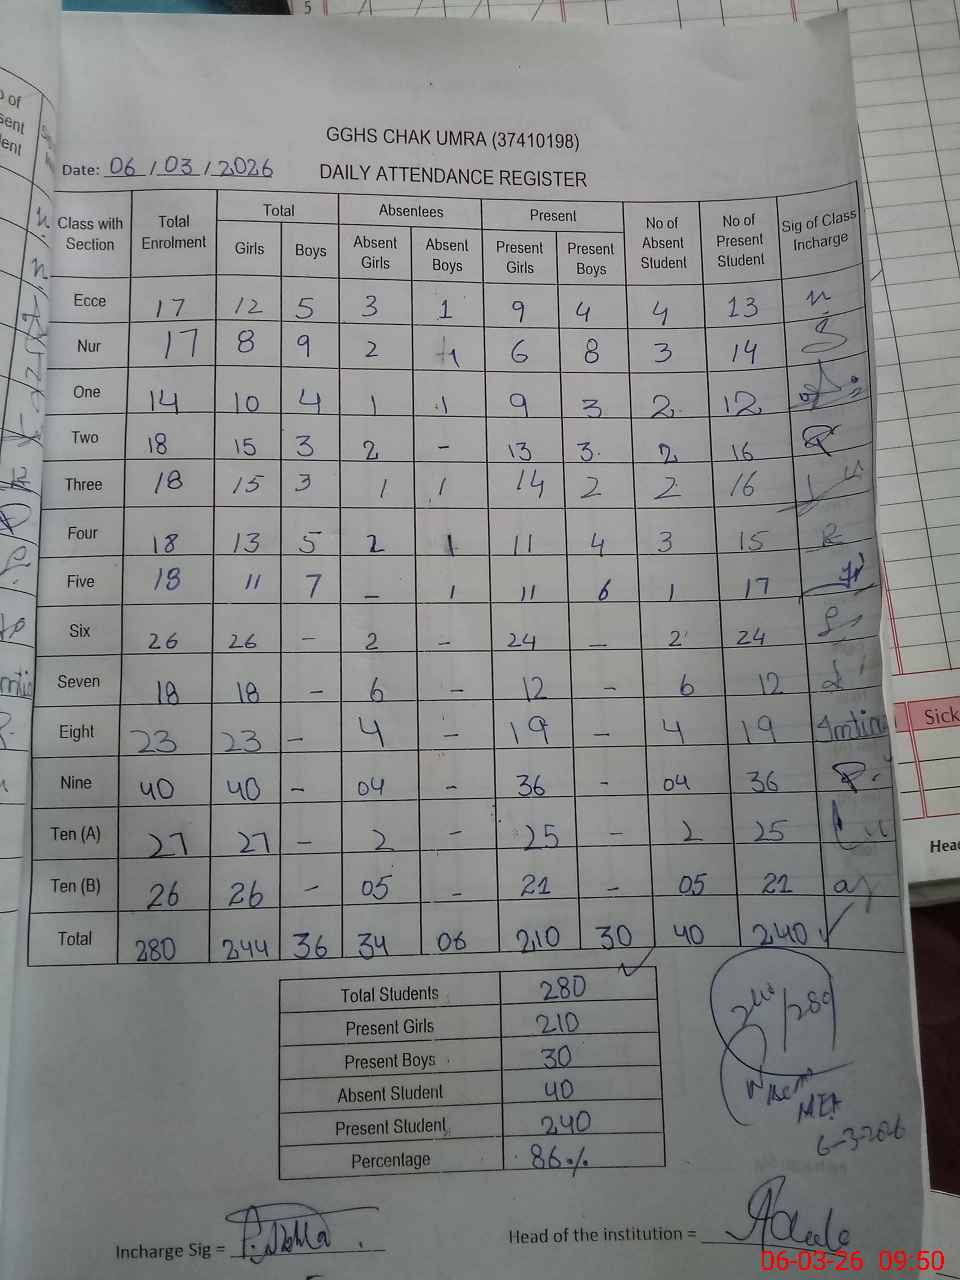 5
GGHS CHAK UMRA (37410198)
Date: 06 / 03 / 2026 DAILY ATTENDANCE REGISTER
Class with Section Total Enrolment Total Absentees Present No of Absent Student No of Present Student Sig of Class Incharge
Girls Boys Absent Girls Absent Boys Present Girls Present Boys
Ecce 17 12 5 3 1 9 4 4 13
Nur 17 8 9 2 1 6 8 3 14
One 14 10 4 1 1 9 3 2 12
Two 18 15 3 2 - 13 3 2 16
Three 18 15 3 1 1 14 2 2 16
Four 18 13 5 2 1 11 4 3 15
Five 18 11 7 - 1 11 6 1 17
Six 26 26 - 2 - 24 - 2 24
Seven 18 18 - 6 - 12 - 6 12
Eight 23 23 - 4 - 19 - 4 19
Nine 40 40 - 04 - 36 - 04 36
Ten (A) 27 27 - 2 - 25 - 2 25
Ten (B) 26 26 - 05 - 21 - 05 21
Total 280 244 36 34 06 210 30 40 240
Total Students 280
Present Girls 210
Present Boys 30
Absent Student 40
Present Student 240
Percentage 86%
240/280
MEA
6-3-2026
Incharge Sig =
Head of the institution =
Sick
Head
06-03-26 09:50